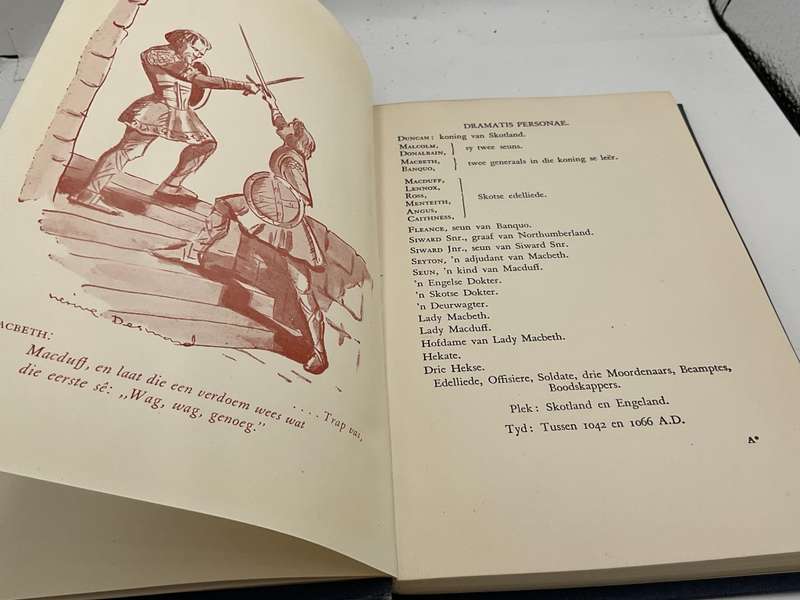 ACBETH:
. . . . Trap vas,
Macduff, en laat die een verdoem wees wat
die eerste sê: „Wag, wag, genoeg.”
DRAMATIS PERSONAE.
DUNCAN: koning van Skotland.
MALCOLM,
DONALBAIN, } sy twee seuns.
MACBETH,
BANQUO, } twee generaals in die koning se leër.
MACDUFF,
LENNOX,
ROSS,
MENTEITH, } Skotse edelliede.
ANGUS,
CAITHNESS,
FLEANCE, seun van Banquo.
SIWARD Snr., graaf van Northumberland.
SIWARD Jnr., seun van Siward Snr.
SEYTON, 'n adjudant van Macbeth.
SEUN, 'n kind van Macduff.
'n Engelse Dokter.
'n Skotse Dokter.
'n Deurwagter.
Lady Macbeth.
Lady Macduff.
Hofdame van Lady Macbeth.
Hekate.
Drie Hekse.
Edelliede, Offisiere, Soldate, drie Moordenaars, Beamptes,
Boodskappers.
Plek: Skotland en Engeland.
Tyd: Tussen 1042 en 1066 A.D.
A*